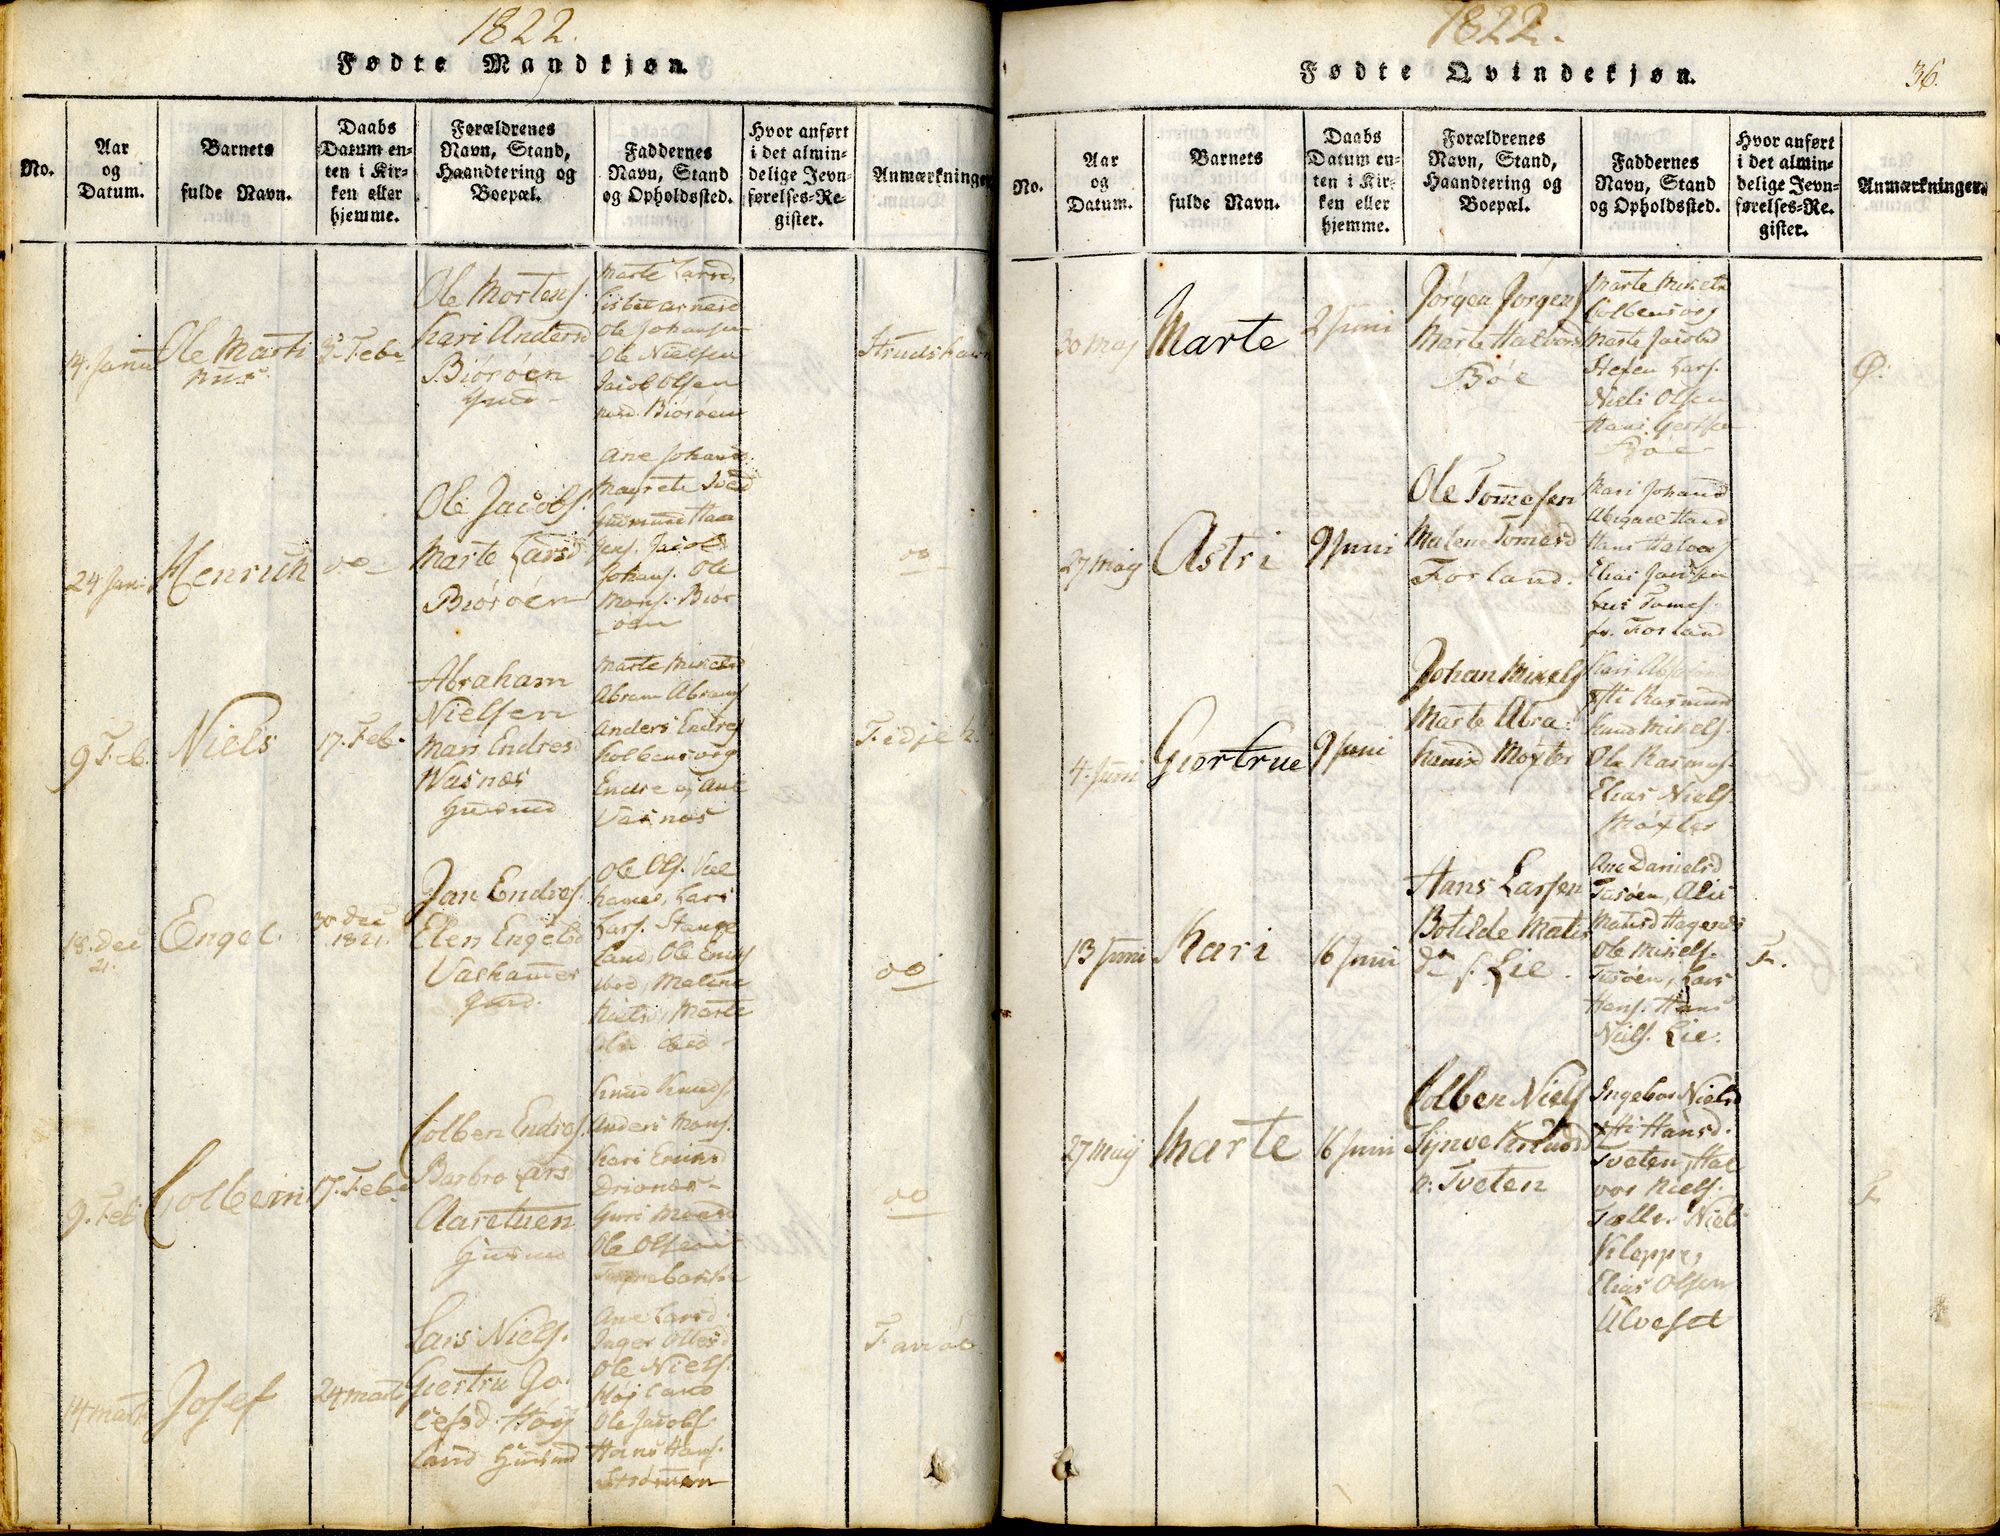 1822.
Fødte Mandkjøn.
No.
Aar
og
Datum.
Barnets
fulde Navn.
Daabs
Datum en-
ten i Kir-
ken eller
hjemme.
Forældrenes
Navn, Stand,
Haandtering og
Boepæl.
Faddernes
Navn, Stand
og Opholdssted.
Hvor anført
i det almin-
delige Jevn-
førelses-Re-
gister.
Anmærkninger
14. Janu
Ole Marti
nus
3 Feb
Ole Mortens.
Kari Andersd
Biørøen
Marte Larsd.
Ole Johansen
Ole Nielsen
Jacob Olsen
Biørøen
24 Jan
Henrich
oo
Ole Jacobs.
Marte Larsd
Biørøen
Ane Johansd.
Magrete
Jens. Jacob
Johans. Ole
Mons. Biør
øen
oo
9 Feb.
Niels
17. Feb.
Abraham
Nielsen
Mari Endresd
Wasnæs
Marte Mikelsd
Abram Abrams
Anders Endres
Kolbensvog
Endre og Ane
Vasnæs
Fedje k.
18. Dec
21.
Engel.
30 Dec
1821.
Jan Endres.
Elen Engelsd
Vashamer
Ole Ols.
hamer, Lars
Lars. Stange
land, Ole
Malene
Marte
oo
9. Feb
Colbein
17. Feb.
Colben Endres.
Barbro Larsd
Aaretuen
Knud Knuds.
Anders Mons.
Kari
Ole Olsen
oo
14 Marti
Josef
24 Marti
Lars Niels.
Giertru Jo-
sefsd. Høy
land
Ane Larsd
Inger Ottesd
Ole Niels.
Høyland
Ole Jacobs.
Hans Hans.
Strømmen
1822.
Fødte Qvindekjøn.
36.
No.
Aar
og
Datum.
Barnets
fulde Navn.
Daabs
Datum en-
ten i Kir-
ken eller
hjemme.
Forældrenes
Navn, Stand,
Haandtering og
Boepæl.
Faddernes
Navn, Stand
og Opholdssted.
Hvor anført
i det almin-
delige Jevn-
førelses-Re-
gister.
Anmærkninger.
30 May
Marte
2 Juni
Jørgen Jørgens
Marte Halvorsd
Bøe
Marte Mikelsd
Colbensvog
Marte Jacobsd
Stefen Lars.
Niels Olsen
Bøe
Ø.
27 May
Astri
9 Juni
Ole Tomesen
Malene Tomesd
Forland.
Kari Johansd
Abigael Hansd
Hans Halvors
Elias Jansen
Tomes.
Forland
4. Juni
Giertrue
9 Juni
Johan Mikels
Marte Abra-
hamsd Møxter
Rasmusd
Knud Mikels.
Ole Rasmus.
Elias Niels.
Møxter
13 Juni
Kari
16 Juni
Hans Larsen
Botilde Matis
dr f. Lie.
Ane Danielsd
Tusøen, Alis
Matisd Hagenæs
Ole Mikels.
Tusøen, Lars
Hans. Hans
Niels. Lie.
F.
27 May
Marte
16 Juni
Colben Niels
Synve Knudsd
n. Tveten
Ingebor Nielsd
Hansd.
Tveten, Hal
vor Niels.
Niels
Kleppe,
Elias Olsen
Ulveset
F.